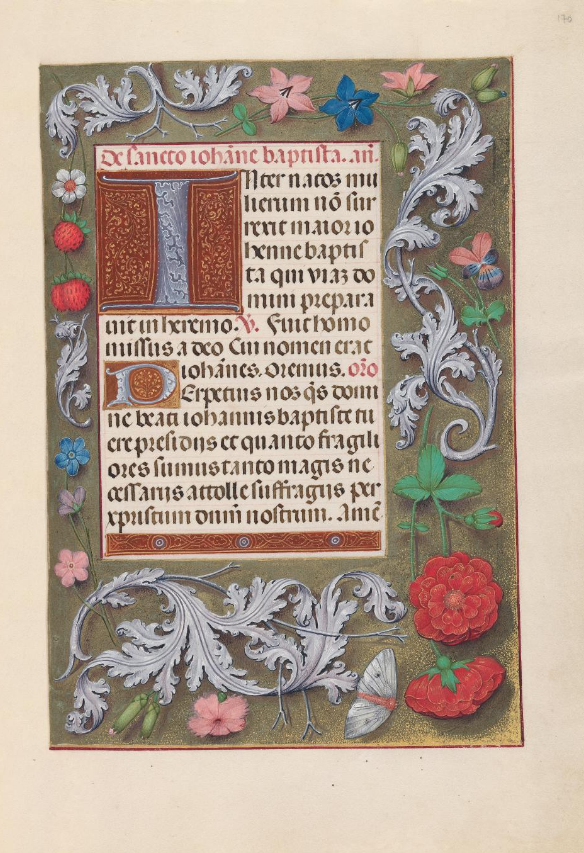 170
De sancto iohāne baptista. añ.
INter natos mu
lierum nō sur
rexit maior io
henne baptis
ta qui viaz do
mini prepara
uit in heremo. V. Fuit homo
missus a deo. Cui nomen erat
iohānes. Oremus. oro
PErpetuis nos q̄s domi
ne beati iohannis baptiste tu
ere presidiis et quanto fragili
ores sumus tanto magis ne
cessariis attolle suffragiis per
xpristum dnm̄ nostrum. Amē